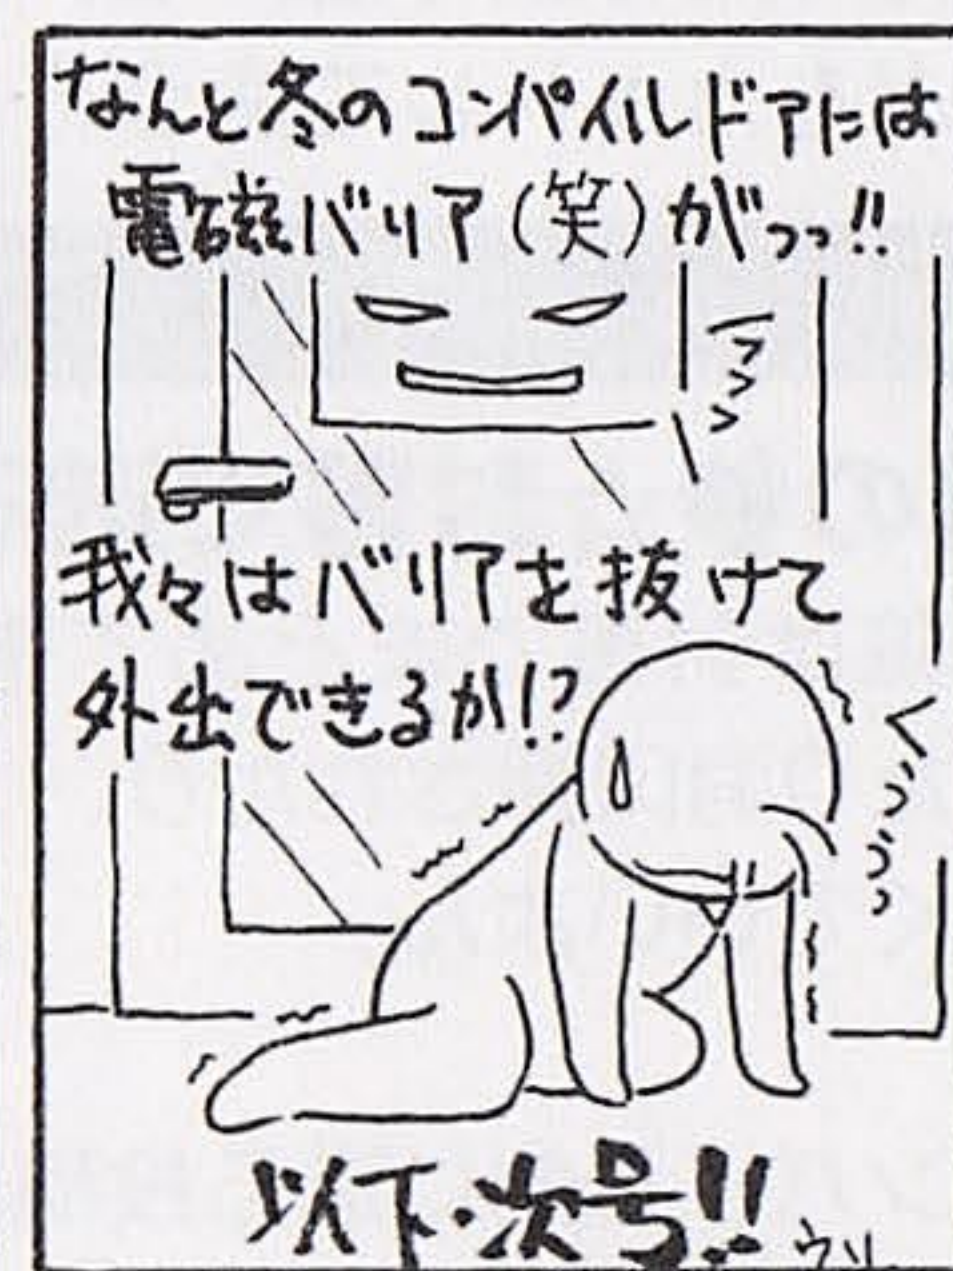 なんと冬のコンパイルドアには
電磁バリア(笑)がっっ!!
我々はバリアを抜けて
外出できるか!?
フフフ
くっうっ
以下・次号!!
ウソ